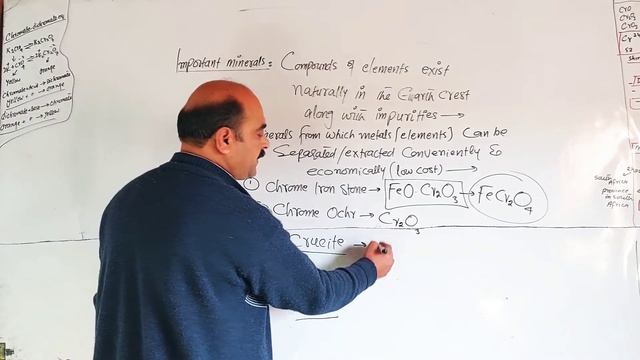 Chromate-dichromate eq
K₂CrO₄ ⇌ K₂Cr₂O₇
yellow orange
chromate + acid → Dichromate
yellow + " → orange
dichromate + base → chromate
orange + " → yellow
Important minerals:- Compounds of elements exist
Naturally in the Earth Crest
along with impurities →
nerals from which metals/elements) Can be
Separated/extracted Conveniently &
economically (low cost) →
① Chrome Iron Stone → FeO.Cr₂O₃ → FeCr₂O₄
Chrome Ochr → Cr₂O₃
Crucite →
CrO
CrO₃
South Africa
province
in South
Africa